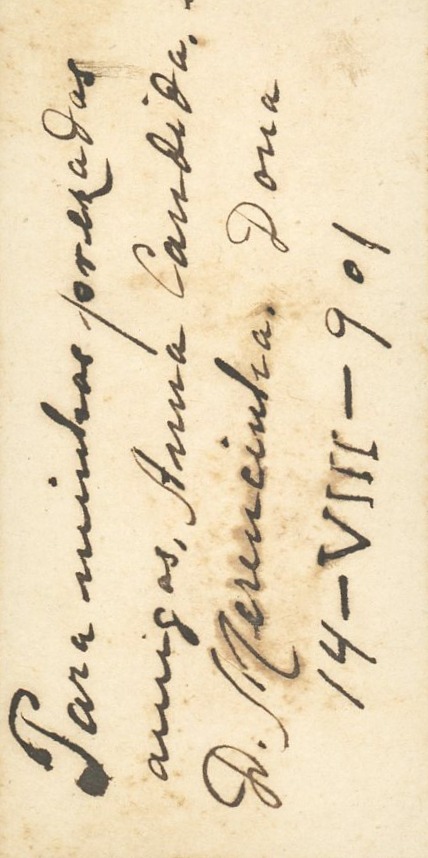 Para minhas prezadas
amigas, Anna Candida. -
D. Merencinha. Dona
14-VIII-901